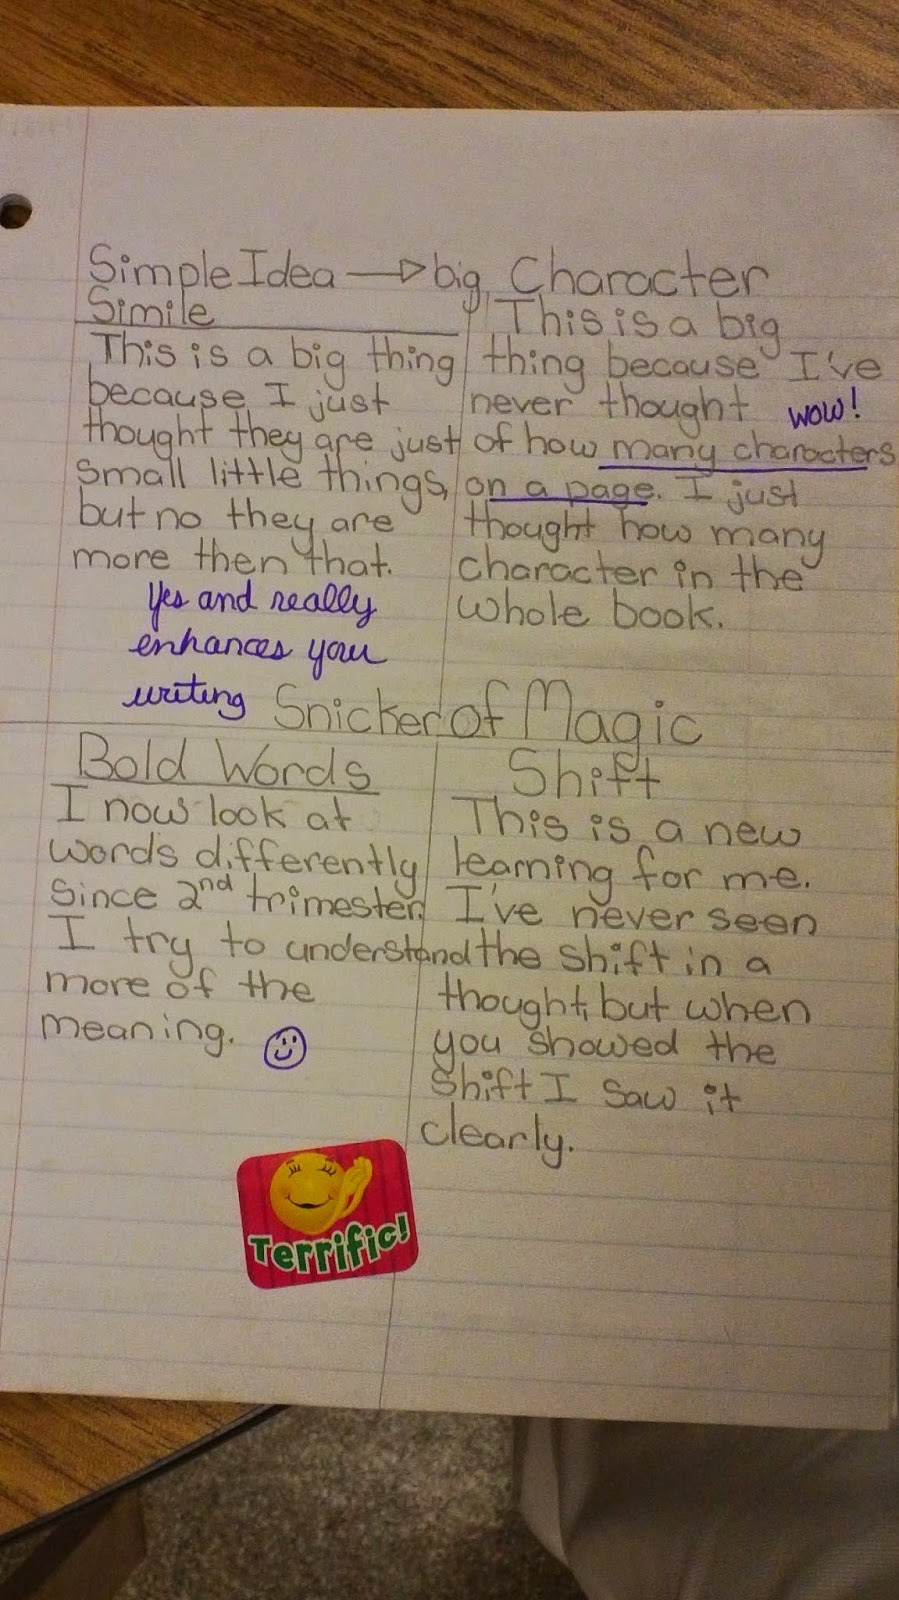 Simple Idea → big
Simile
This is a big thing
because I just
thought they are just
small little things,
but no they are
more then that.
Yes and really
enhances your
writing
Character
This is a big
thing because I've
never thought wow!
of how many characters
on a page. I just
thought how many
character in the
whole book.
Snicker of Magic
Bold Words
I now look at
words differently
since 2nd trimester.
I try to understand
more of the
meaning.
Shift
This is a new
learning for me.
I've never seen
the shift in a
thought, but when
you showed the
shift I saw it
clearly.
Terrific!